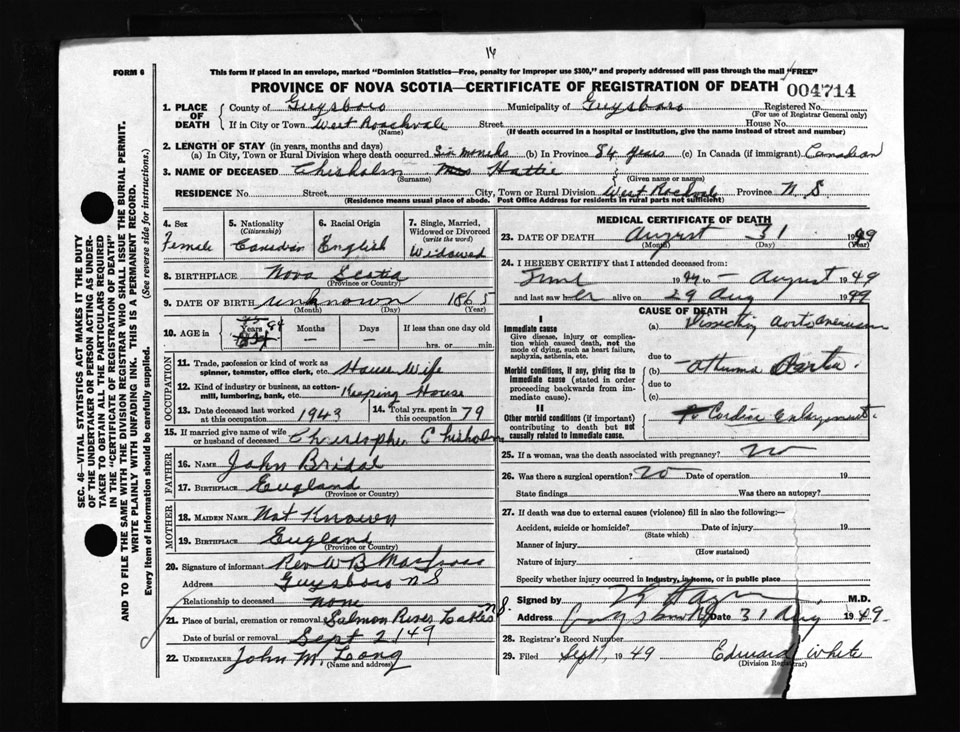 14
FORM 6
This form if placed in an envelope, marked "Dominion Statistics—Free, penalty for improper use $300," and properly addressed will pass through the mail "FREE"
PROVINCE OF NOVA SCOTIA—CERTIFICATE OF REGISTRATION OF DEATH
004714
1. PLACE OF DEATH
County of Guysboro Municipality of Guysboro Registered No.
(For use of Registrar General only)
If in City or Town West Roachvale Street House No.
(Name) (If death occurred in a hospital or institution, give the name instead of street and number)
2. LENGTH OF STAY (in years, months and days)
(a) In City, Town or Rural Division where death occurred Six months (b) In Province 84 years (c) In Canada (if immigrant) Canadian
3. NAME OF DECEASED Chisholm Hattie
(Surname) (Given name or names)
RESIDENCE No. Street City, Town or Rural Division West Roachvale Province N S
(Residence means usual place of abode. Post Office Address for residents in rural parts not sufficient)
4. Sex
Female
5. Nationality
(Citizenship)
Canadian
6. Racial Origin
English
7. Single, Married, Widowed or Divorced
(write the word)
Widowed
8. BIRTHPLACE Nova Scotia
(Province or Country)
9. DATE OF BIRTH unknown 1865
(Month) (Day) (Year)
10. AGE in
Years 84
Months
—
Days
—
If less than one day old
hrs. or min.
OCCUPATION
11. Trade, profession or kind of work as spinner, teamster, office clerk, etc. House Wife
12. Kind of industry or business, as cotton-mill, lumbering, bank, etc. Keeping House
13. Date deceased last worked at this occupation 1943
14. Total yrs. spent in this occupation 79
15. If married give name of wife or husband of deceased Christopher Chisholm
FATHER
16. NAME John Bridal
17. BIRTHPLACE England
(Province or Country)
MOTHER
18. MAIDEN NAME Not Known
19. BIRTHPLACE England
(Province or Country)
20. Signature of informant Rev W B
Address Guysboro N S
Relationship to deceased none
21. Place of burial, cremation or removal Salmon River Lakes N S.
Date of burial or removal Sept 2 / 49
22. UNDERTAKER John M. Long
(Name and address)
MEDICAL CERTIFICATE OF DEATH
23. DATE OF DEATH August 31 1949
(Month) (Day) (Year)
24. I HEREBY CERTIFY that I attended deceased from:
June 1949 to — August 1949
and last saw her alive on 29 Aug 1949
CAUSE OF DEATH
I
Immediate cause
Give disease, injury or complication which caused death, not the mode of dying, such as heart failure, asphyxia, asthenia, etc.
(a) Dissecting Aorta Aneurism
due to
Morbid conditions, if any, giving rise to immediate cause (stated in order proceeding backwards from immediate cause).
(b)
due to
(c)
II
Other morbid conditions (if important) contributing to death but not causally related to immediate cause.
Cardiac Enlargement.
25. If a woman, was the death associated with pregnancy? no
26. Was there a surgical operation? no Date of operation 19
State findings Was there an autopsy?
27. If death was due to external causes (violence) fill in also the following:—
Accident, suicide or homicide? Date of injury 19
(State which)
Manner of injury
(How sustained)
Nature of injury
Specify whether injury occurred in industry, in home, or in public place
Signed by M.D.
Address Guysboro NS Date 31 Aug 1949.
28. Registrar's Record Number
29. Filed Sept 1, 1949 Edward White
(Division Registrar)
SEC. 46—VITAL STATISTICS ACT MAKES IT THE DUTY
OF THE UNDERTAKER OR PERSON ACTING AS UNDER-
TAKER TO OBTAIN ALL THE PARTICULARS REQUIRED
IN THE "CERTIFICATE OF REGISTRATION OF DEATH"
AND TO FILE THE SAME WITH THE DIVISION REGISTRAR WHO SHALL ISSUE THE BURIAL PERMIT.
WRITE PLAINLY WITH UNFADING INK. THIS IS A PERMANENT RECORD.
Every item of information should be carefully supplied. (See reverse side for instructions.)